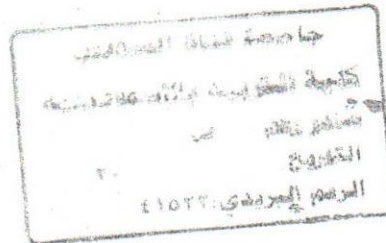 جامعة قناة السويس
كلية التربية
صادر رقم
التاريخ ٢٠
الرمز البريدي: ٤١٥٢٢